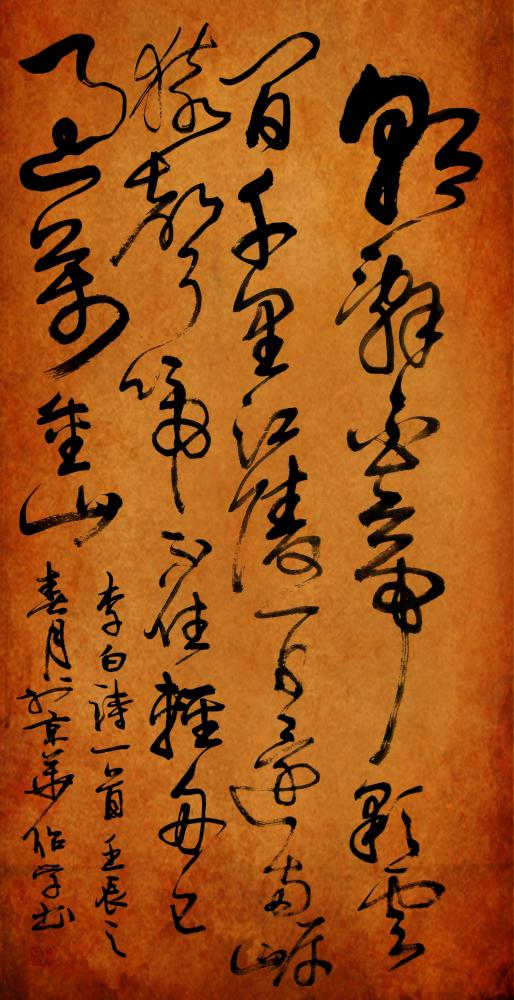 朝辭白帝彩雲
間千里江陵一日還兩岸
猿聲啼不住輕舟已
過萬重山
李白詩一首壬辰之
春月於京華